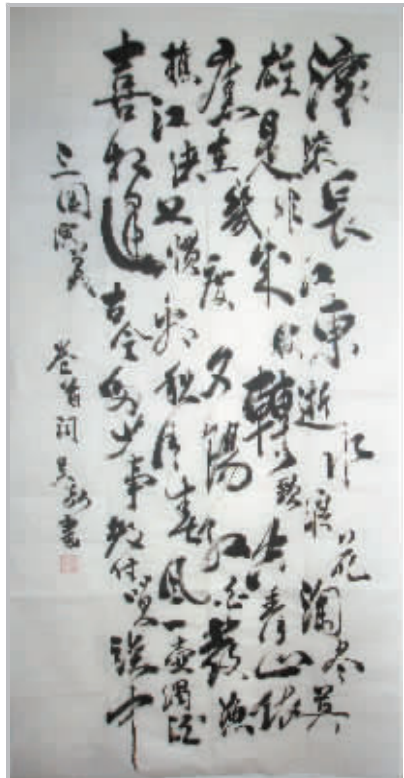 滚滚長江東逝水浪花淘尽英
雄是非成敗轉頭空青山依
舊在幾度夕陽紅白髮漁
樵江渚上慣看秋月春風一壺濁酒
喜相逢古今多少事都付笑談中
三国演義 卷首词 書